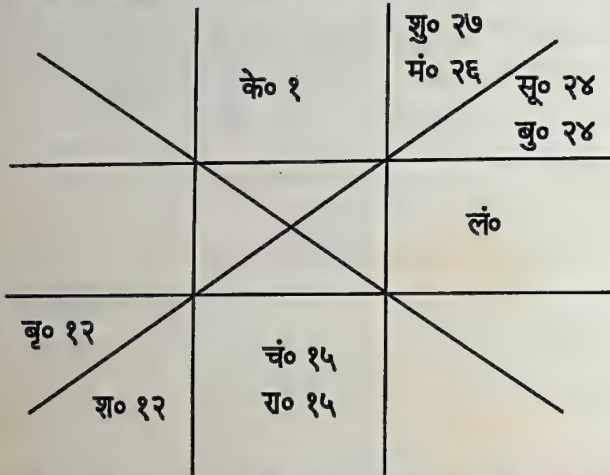 शु० २७
मं० २६
के० १
सू० २४
बु० २४
लं०
बृ० १२
श० १२
चं० १५
रा० १५